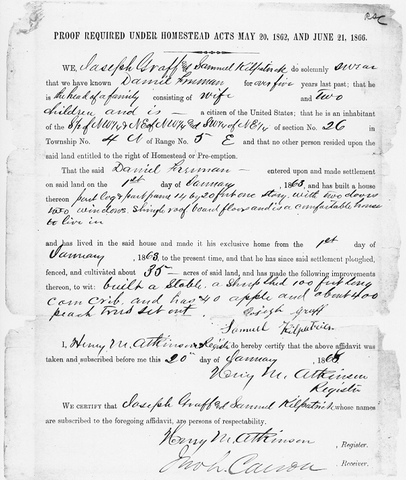 PROOF REQUIRED UNDER HOMESTEAD ACTS MAY 20, 1862, AND JUNE 21, 1866.
WE, Joseph Graff & Samuel Kilpatrick do solemnly swear
that we have known Daniel Freeman for over five years last past; that he
is the head of a family consisting of wife and two
children and is — a citizen of the United States; that he is an inhabitant
of the S½ of NW¼ & NE¼ of NW¼ & SW¼ of NE¼ of section No. 26
in Township No. 4 N of Range No. 5 E and that no other person resided upon the
said land entitled to the right of Homestead or Pre-emption.
That the said Daniel Freeman — entered upon and made settlement
on said land on the 1st day of January, 1863, and has built a house
thereon part log & part frame 14 by 20 feet one story, with two doors
two windows, shingle roof board floors and is a comfortable house
to live in
and has lived in the said house and made it his exclusive home from the 1st day of
January, 1863, to the present time, and that he has since said settlement ploughed,
fenced, and cultivated about 35 — acres of said land, and has made the following improvements
thereon, to wit: built a stable, a shop shed 100 feet long
corn crib, and has 40 apple and about 400
peach trees set out.
Joseph Graff
Samuel Kilpatrick
I, Henry M. Atkinson Register do hereby certify that the above affidavit was
taken and subscribed before me this 20th day of January, 1868
Henry M. Atkinson
Register
WE CERTIFY that Joseph Graff & Samuel Kilpatrick whose names
are subscribed to the foregoing affidavit, are persons of respectability.
Henry M. Atkinson, Register.
Jno. L. Carson, Receiver.